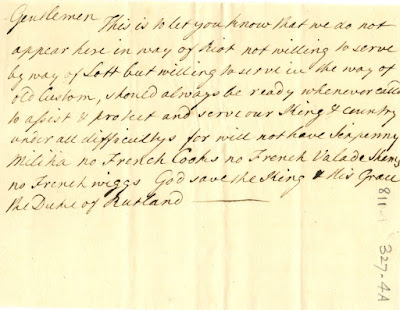 Gentlemen This is to let you know that we do not
appear here in way of Riot not willing to serve
by way of Lott but willing to serve in the way of
old Custom, should always be ready whenever calld
to assist & protect and serve our King & Country
under all difficultys for will not have Sixpenny
Militia no French Cooks no French Valade Shams
no French wiggs God save the King & His Grace
the Duke of Rutland
327-4A